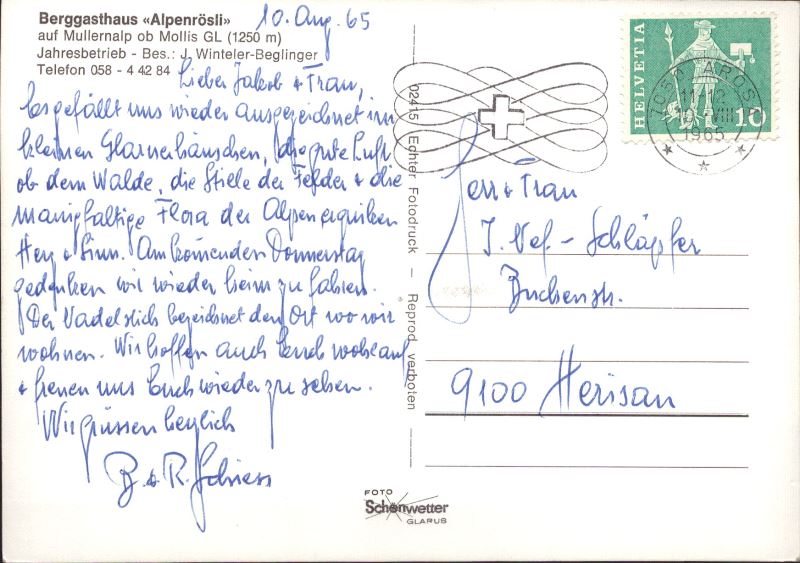 Berggasthaus «Alpenrösli»
auf Mullernalp ob Mollis GL (1250 m)
Jahresbetrieb - Bes.: J. Winteler-Beglinger
Telefon 058 - 4 42 84
10. Aug. 65
Lieber Jakob & Frau,
Es gefällt uns wieder ausgezeichnet im
kleinen Glarnerhäuschen, die gute Luft
ob dem Walde, die Stille der Felder & die
mannigfaltige Flora der Alpen erquicken
Herz & Sinn. Am kommenden Donnerstag
gedenken wir wieder heim zu fahren.
Der Nadelstich bezeichnet den Ort wo wir
wohnen. Wir hoffen auch Euch wohlauf
& freuen uns Euch wieder zu sehen.
Wir grüssen herzlich
B. & R. Schiess
02415 Echter Fotodruck – Reprod. verboten
FOTO
Schönwetter
GLARUS
HELVETIA
10
7050 AROSA
10. VIII
1965
Herr & Frau
J. Nef - Schläpfer
Buchenstr.
9100 Herisau